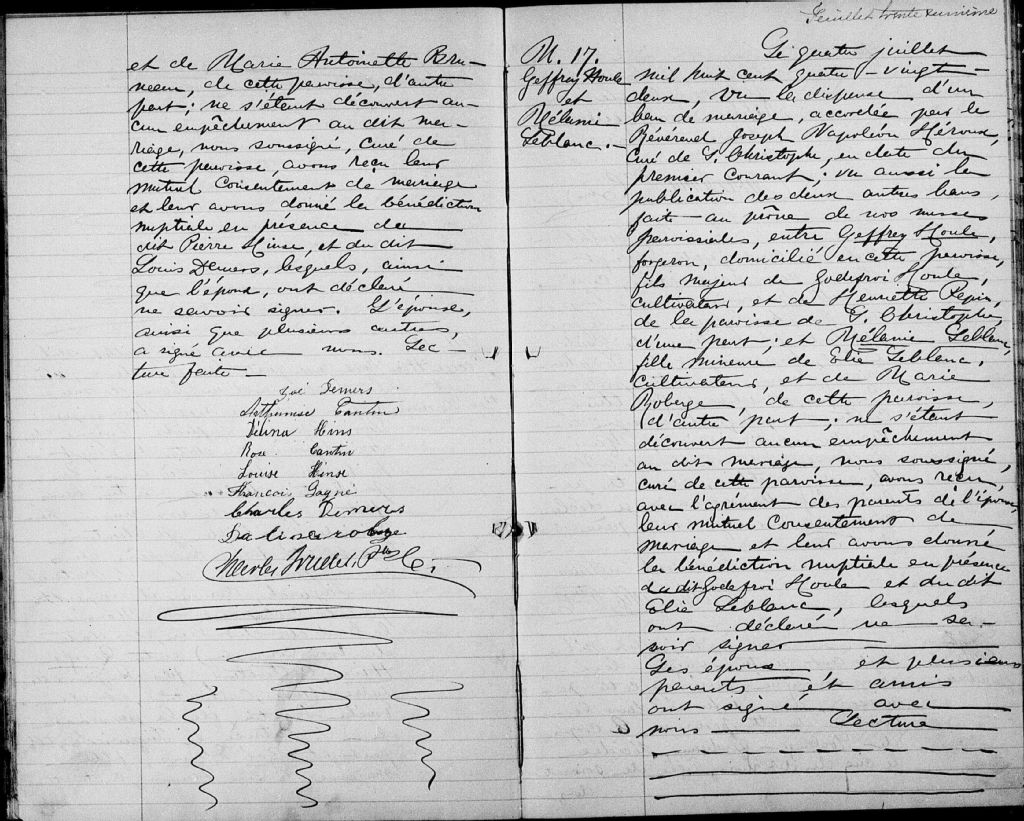 et de Marie Antoinette Bru-
neau, de cette paroisse, d'autre
part; ne s'étant découvert au-
cun empêchement au dit ma-
riage, nous soussigné, curé de
cette paroisse, avons reçu leur
mutuel consentement de mariage
et leur avons donné la bénédiction
nuptiale en présence du
dit Pierre Hinse, et du dit
Louis Demers, lesquels, ainsi
que l'époux, ont déclaré
ne savoir signer. L'épouse,
ainsi que plusieurs autres,
a signé avec nous. Lec-
ture faite -
Zoé Demers
Alphonse Cantin
Délina Hins
Rose Cantin
Louise Hinse
François Gagné
Charles Demers
Charles Trudel, Ptre C.
Feuillet trente
M. 17.
Geffrey Houle
et
Mélanie
Leblanc.-
Le quatre juillet
mil huit cent quatre-vingt
deux, vu la dispense d'un
ban de mariage, accordée par le
Révérend Joseph Napoléon Héroux,
curé de S. Christophe, en date du
premier courant; vu aussi la
publication des deux autres bans,
faite au prône de nos messes
paroissiales, entre Geffrey Houle,
forgeron, domicilié en cette paroisse,
fils majeur de Godefroi Houle,
cultivateur, et de Henriette Pepin,
de la paroisse de S. Christophe,
d'une part; et Mélanie Leblanc,
fille mineure de Elie Leblanc,
cultivateur, et de Marie
Roberge, de cette paroisse,
d'autre part; ne s'étant
découvert aucun empêchement
au dit mariage, nous soussigné,
curé de cette paroisse, avons reçu,
avec l'agrément des parents de l'épouse,
leur mutuel consentement de
mariage et leur avons donné
la bénédiction nuptiale en présence
du dit Godefroi Houle et du dit
Elie Leblanc, lesquels
ont déclaré ne sa-
voir signer
Les époux et plusieurs
parents et amis
ont signé avec
nous Lecture